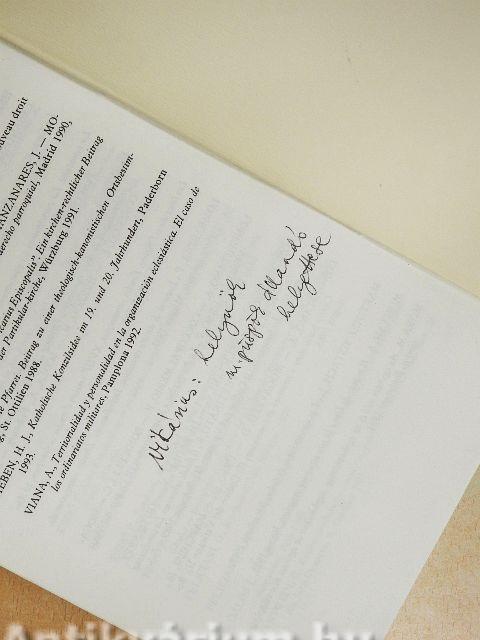 uveau droit
ANZANARES, J. — MO-
derecho parroquial, Madrid 1990,
icarius Episcopalis". Ein kirchenrechtlicher Beitrag
der Partikularkirche, Würzburg 1991.
e Pfarrei. Beitrag zu einer theologisch-kanonistischen Ortsbestim-
g, St. Ottilien 1988.
IEBEN, H. J., Katholische Konzilsidee im 19. und 20. Jahrhundert, Paderborn
1993.
VIANA, A., Territorialidad y personalidad en la organización eclesiástica. El caso de
los ordinariatos militares, Pamplona 1992.
Vikárius: helynök
püspök állandó
helyettese
Antikvárium.hu